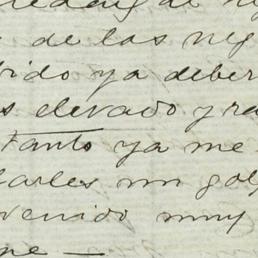 de las neg
bido ya deber
s elevado y ra
tanto ya me
darles un golp
venido muy
me —